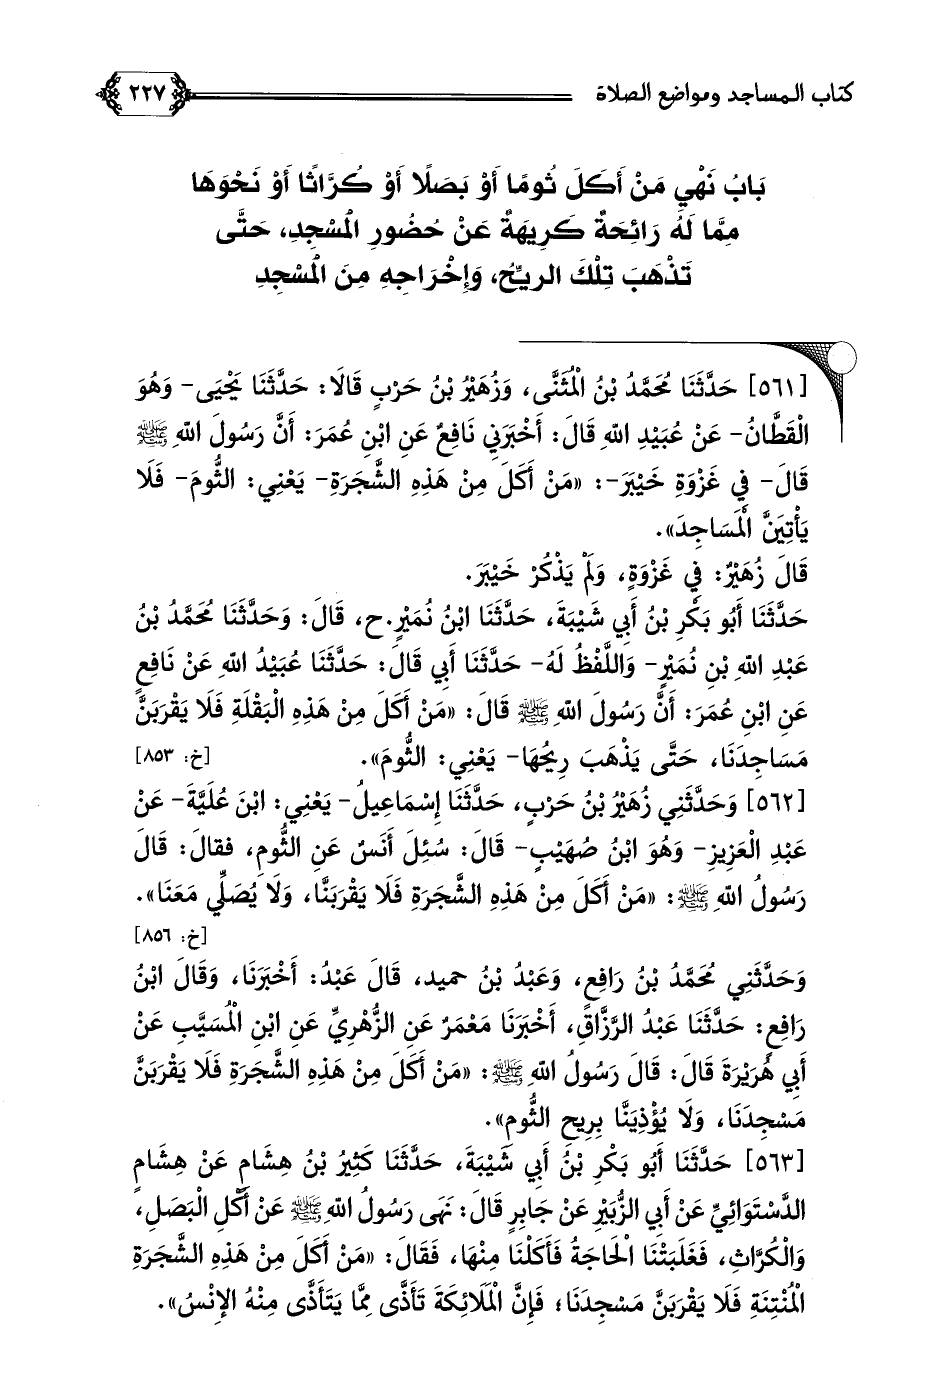 كتاب المساجد ومواضع الصلاة ٢٢٧
بَابُ نَهْيِ مَنْ أَكَلَ ثُومًا أَوْ بَصَلًا أَوْ كُرَّاثًا أَوْ نَحْوَهَا
مِمَّا لَهُ رَائِحَةٌ كَرِيهَةٌ عَنْ حُضُورِ الْمَسْجِدِ، حَتَّى
تَذْهَبَ تِلْكَ الرِّيحُ، وَإِخْرَاجِهِ مِنَ الْمَسْجِدِ
[٥٦١] حَدَّثَنَا مُحَمَّدُ بْنُ الْمُثَنَّى، وَزُهَيْرُ بْنُ حَرْبٍ قَالَا: حَدَّثَنَا يَحْيَى- وَهُوَ
الْقَطَّانُ- عَنْ عُبَيْدِ اللهِ قَالَ: أَخْبَرَنِي نَافِعٌ عَنِ ابْنِ عُمَرَ: أَنَّ رَسُولَ اللهِ ﷺ
قَالَ- فِي غَزْوَةِ خَيْبَرَ-: «مَنْ أَكَلَ مِنْ هَذِهِ الشَّجَرَةِ- يَعْنِي: الثُّومَ- فَلَا
يَأْتِيَنَّ الْمَسَاجِدَ».
قَالَ زُهَيْرٌ: فِي غَزْوَةٍ، وَلَمْ يَذْكُرْ خَيْبَرَ.
حَدَّثَنَا أَبُو بَكْرِ بْنُ أَبِي شَيْبَةَ، حَدَّثَنَا ابْنُ نُمَيْرٍ.ح، قَالَ: وَحَدَّثَنَا مُحَمَّدُ بْنُ
عَبْدِ اللهِ بْنِ نُمَيْرٍ- وَاللَّفْظُ لَهُ- حَدَّثَنَا أَبِي قَالَ: حَدَّثَنَا عُبَيْدُ اللهِ عَنْ نَافِعٍ
عَنِ ابْنِ عُمَرَ: أَنَّ رَسُولَ اللهِ ﷺ قَالَ: «مَنْ أَكَلَ مِنْ هَذِهِ الْبَقْلَةِ فَلَا يَقْرَبَنَّ
مَسَاجِدَنَا، حَتَّى يَذْهَبَ رِيحُهَا- يَعْنِي: الثُّومَ». [خ: ٨٥٣]
[٥٦٢] وَحَدَّثَنِي زُهَيْرُ بْنُ حَرْبٍ، حَدَّثَنَا إِسْمَاعِيلُ- يَعْنِي: ابْنَ عُلَيَّةَ- عَنْ
عَبْدِ الْعَزِيزِ- وَهُوَ ابْنُ صُهَيْبٍ- قَالَ: سُئِلَ أَنَسٌ عَنِ الثُّومِ، فقالَ: قَالَ
رَسُولُ اللهِ ﷺ: «مَنْ أَكَلَ مِنْ هَذِهِ الشَّجَرَةِ فَلَا يَقْرَبَنَّا، وَلَا يُصَلِّي مَعَنَا».
[خ: ٨٥٦]
وَحَدَّثَنِي مُحَمَّدُ بْنُ رَافِعٍ، وَعَبْدُ بْنُ حميد، قَالَ عَبْدٌ: أَخْبَرَنَا، وَقَالَ ابْنُ
رَافِعٍ: حَدَّثَنَا عَبْدُ الرَّزَّاقِ، أَخْبَرَنَا مَعْمَرٌ عَنِ الزُّهْرِيِّ عَنِ ابْنِ الْمُسَيَّبِ عَنْ
أَبِي هُرَيْرَةَ قَالَ: قَالَ رَسُولُ اللهِ ﷺ: «مَنْ أَكَلَ مِنْ هَذِهِ الشَّجَرَةِ فَلَا يَقْرَبَنَّ
مَسْجِدَنَا، وَلَا يُؤْذِيَنَّا بِرِيحِ الثُّومِ».
[٥٦٣] حَدَّثَنَا أَبُو بَكْرِ بْنُ أَبِي شَيْبَةَ، حَدَّثَنَا كَثِيرُ بْنُ هِشَامٍ عَنْ هِشَامٍ
الدَّسْتَوَائِيِّ عَنْ أَبِي الزُّبَيْرِ عَنْ جَابِرٍ قَالَ: نَهَى رَسُولُ اللهِ ﷺ عَنْ أَكْلِ الْبَصَلِ،
وَالْكُرَّاثِ، فَغَلَبَتْنَا الْحَاجَةُ فَأَكَلْنَا مِنْهَا، فَقَالَ: «مَنْ أَكَلَ مِنْ هَذِهِ الشَّجَرَةِ
الْمُنْتِنَةِ فَلَا يَقْرَبَنَّ مَسْجِدَنَا؛ فَإِنَّ الْمَلَائِكَةَ تَأَذَّى مِمَّا يَتَأَذَّى مِنْهُ الإِنْسُ».